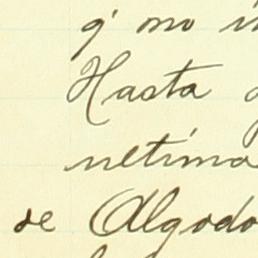 q' no i
Hasta
ultima
de Algodo